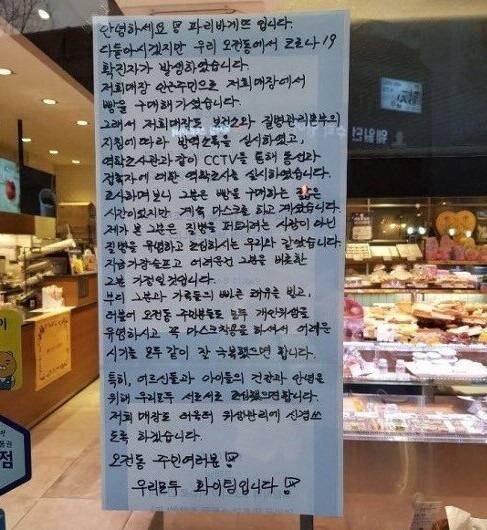 안녕하세요 파리바게뜨 입니다.
다들아시겠지만 우리 오전동에서 코로나 19
확진자가 발생하였습니다.
저희매장 인근주민으로 저희매장에서
빵을 구매해가셨습니다.
그래서 저희매장도 보건소와 질병관리본부의
지침에따라 방역소독을 실시하였고,
역학조사관과 같이 CCTV를 통해 동선과
접촉자에 대한 역학조사를 실시하였습니다.
조사하며보니 그분은 빵을 구매하는 짧은
시간이었지만 계속 마스크를 하고 계셨습니다.
제가 본 그분은 질병을 퍼뜨리려는 사람이 아닌
질병을 유념하고 조심하시는 우리와 같았습니다.
지금가장슬프고 어려운건 그분을 비롯한
그분 가정일것입니다.
부디 그분과 가족들의 빠른 쾌유를 빌고,
더불어 오전동 주민분들도 모두 개인위생을
유념하시고 꼭 마스크착용을 하여서 어려운
시기를 모두 같이 잘 극복했으면 합니다.
특히, 어르신들과 아이들의 건강과 안녕을
위해 우리모두 서로서로 조심했으면합니다.
저희 매장도 더욱더 위생관리에 신경쓰
도록 하겠습니다.
오전동 주민여러분
우리모두 화이팅입니다
점